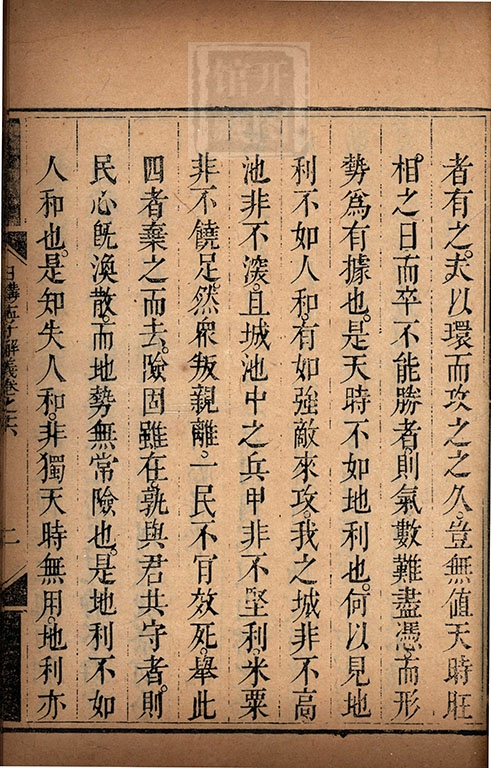 者有之夫以環而攻之之久豈無值天時旺
相之日而卒不能勝者則氣數難盡憑而形
勢爲有據也是天時不如地利也何以見地
利不如人和有如強敵來攻我之城非不高
池非不深且城池中之兵甲非不堅利米粟
非不饒足然衆叛親離一民不肯效死舉此
四者棄之而去險固雖在孰與君共守者則
民心既渙散而地勢無常險也是地利不如
人和也是知失人和非獨天時無用地利亦
日講孟子解義卷之六
二